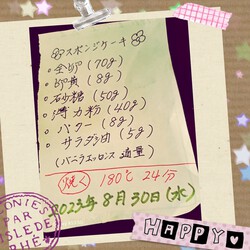 スポンジケーキ
・全卵(70g)
・卵黄(8g)
・砂糖(50g)
・薄力粉(40g)
・バター(8g)
・サラダ油(5g)
(バニラエッセンス 適量)
焼く 180℃ 24分
2023年8月30日(水)
HAPPY
ONIE'S
PAR
ISLEDE
RHE